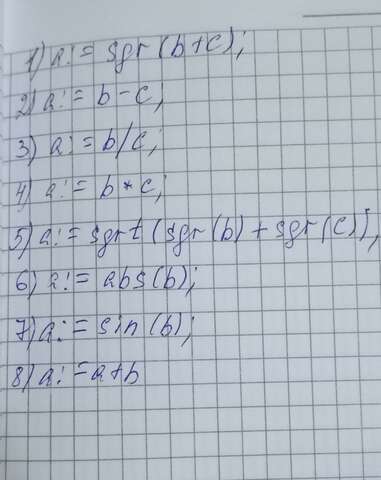 1) a:= sgr(b+c);
2) a:= b-c;
3) a:= b/c;
4) a:= b*c;
5) a:= sgrt(sgr(b)+sgr(c));
6) a:= abs(b);
7) a:= sin(b);
8) a:= a+b